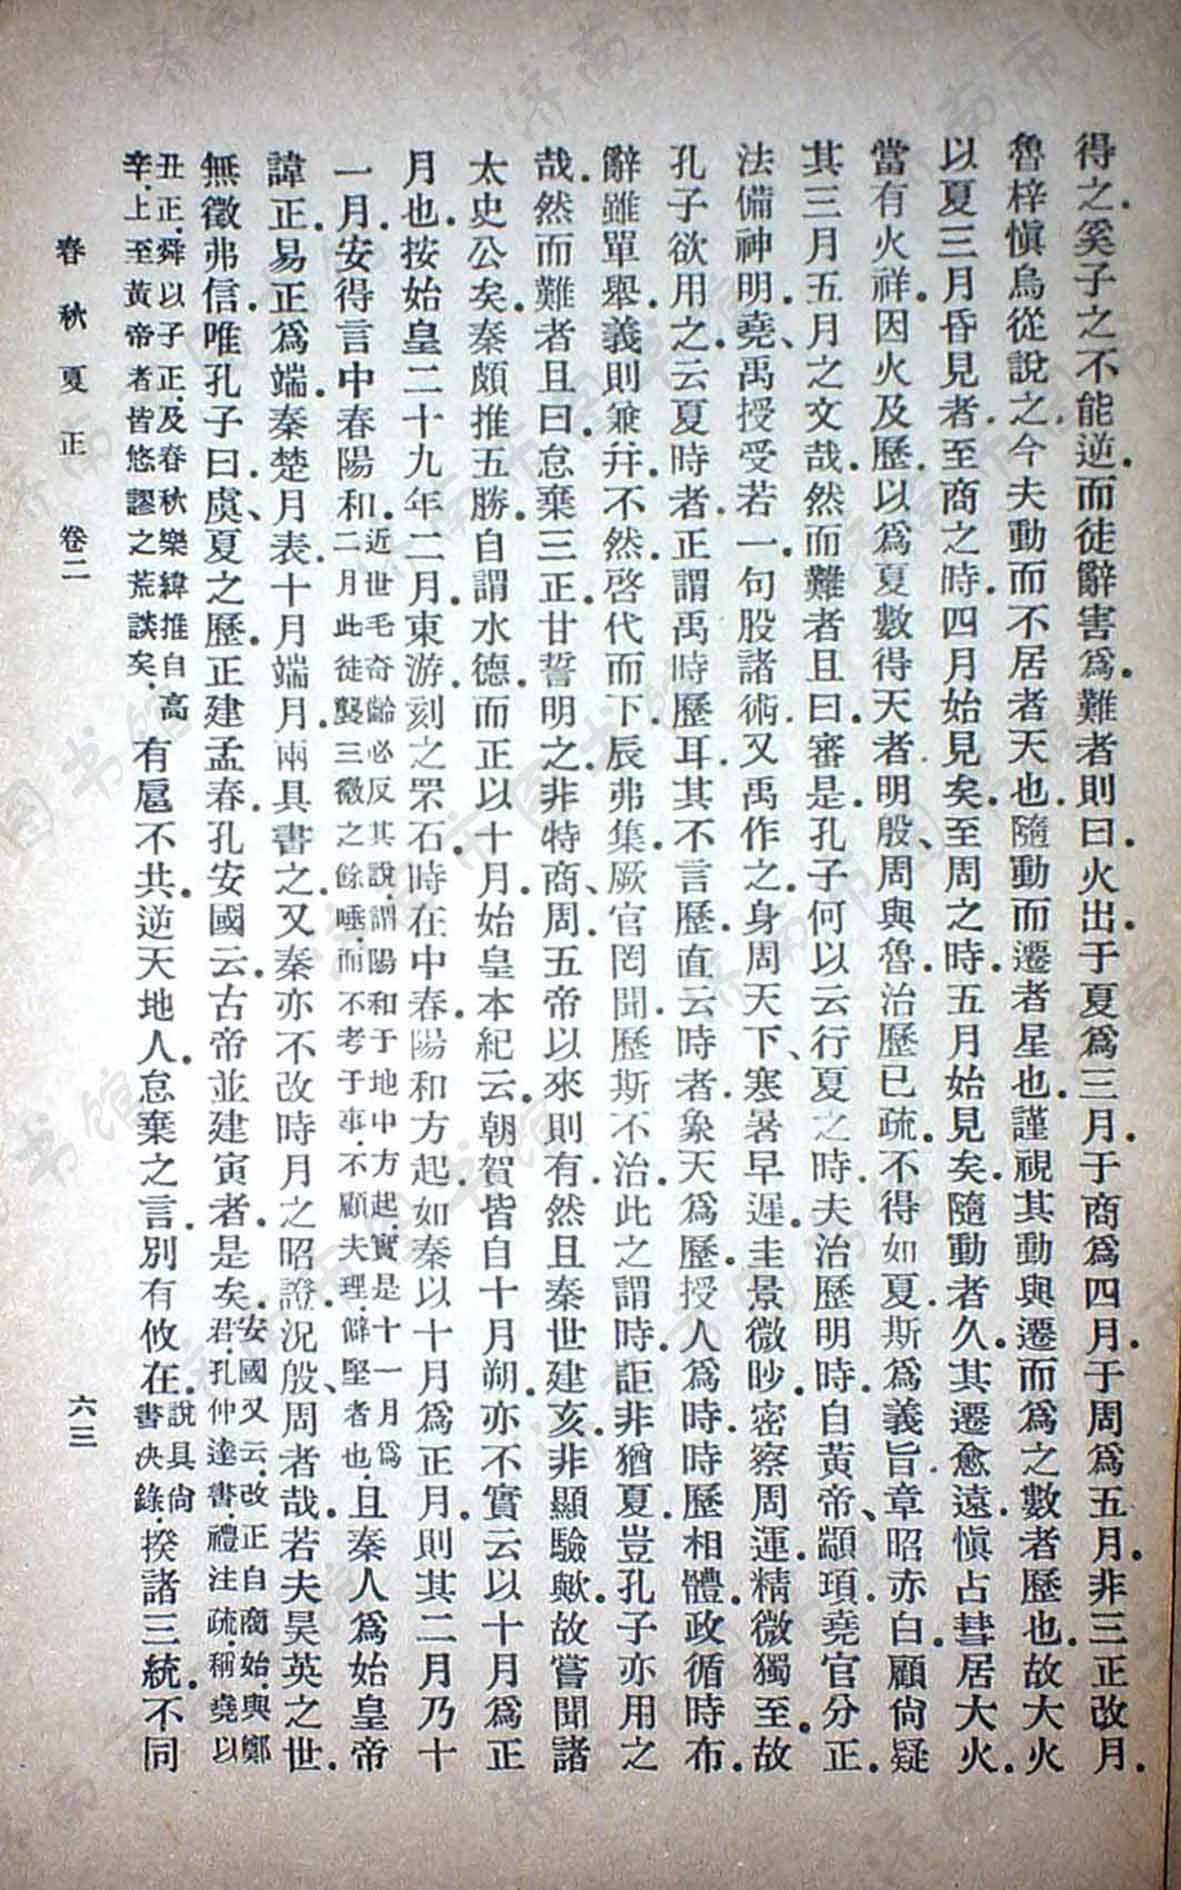 得之.奚子之不能逆.而徒辭害爲.難者則曰.火出.于夏爲三月.于商爲四月.于周爲五月.非三正改月.
魯梓愼烏從說之.今夫動而不居者天也.隨動而遷者星也.謹視其動與遷而爲之數者歷也.故大火
以夏三月昏見者.至商之時.四月始見矣.至周之時.五月始見矣.隨動者久.其遷愈遠.愼占彗居大火.
當有火祥.因火及歷.以爲夏數得天者明.殷、周與魯.治歷已疏.不得如夏.斯爲義旨.章昭亦白.顧尙疑
其三月五月之文哉.然而難者且曰.審是.孔子何以云行夏之時.夫治歷明時.自黃帝、顓頊.堯官分正.
法備神明.堯、禹授受若一.句股諸術.又禹作之.身周天下、寒暑早遲.圭景微眇.密察周運.精微獨至.故
孔子欲用之.云夏時者.正謂禹時歷耳.其不言歷.直云時者.象天爲歷.授人爲時.時歷相體.政循時布.
辭雖單舉.義則兼幷.不然.啓代而下.辰弗集.厥官罔聞.歷斯不治.此之謂時.詎非猶夏.豈孔子亦用之
哉.然而難者且曰.怠棄三正.甘誓明之.非特商、周.五帝以來則有.然且秦世建亥.非顯驗歟.故嘗聞諸
太史公矣.秦頗推五勝.自謂水德.而正以十月.始皇本紀云.朝賀皆自十月朔.亦不實云以十月爲正
月也.按始皇二十九年二月.東游.刻之罘石.時在中春.陽和方起.如秦以十月爲正月.則其二月乃十
一月.安得言中春陽和.近世毛奇齡必反其說.謂陽和于地中方起.實是十一月爲二月.此徒襲三微之餘唾.而不考于事.不顧夫理.僻堅者也.且秦人爲始皇帝
諱正.易正爲端.秦楚月表.十月端月.兩具書之.又秦亦不改時月之昭證.況殷、周者哉.若夫昊英之世.
無徵弗信.唯孔子曰.虞、夏之歷.正建孟春.孔安國云.古帝並建寅者.是矣.安國又云.改正自商始.與鄭君.孔仲達書.禮注疏.稱堯以
丑正.舜以子正.及春秋樂緯推自高辛.上至黃帝者皆悠謬之荒談矣.有扈不共.逆天地人.怠棄之言.別有攸在.說具尙書決錄.揆諸三統.不同
春秋夏正 卷二 六三